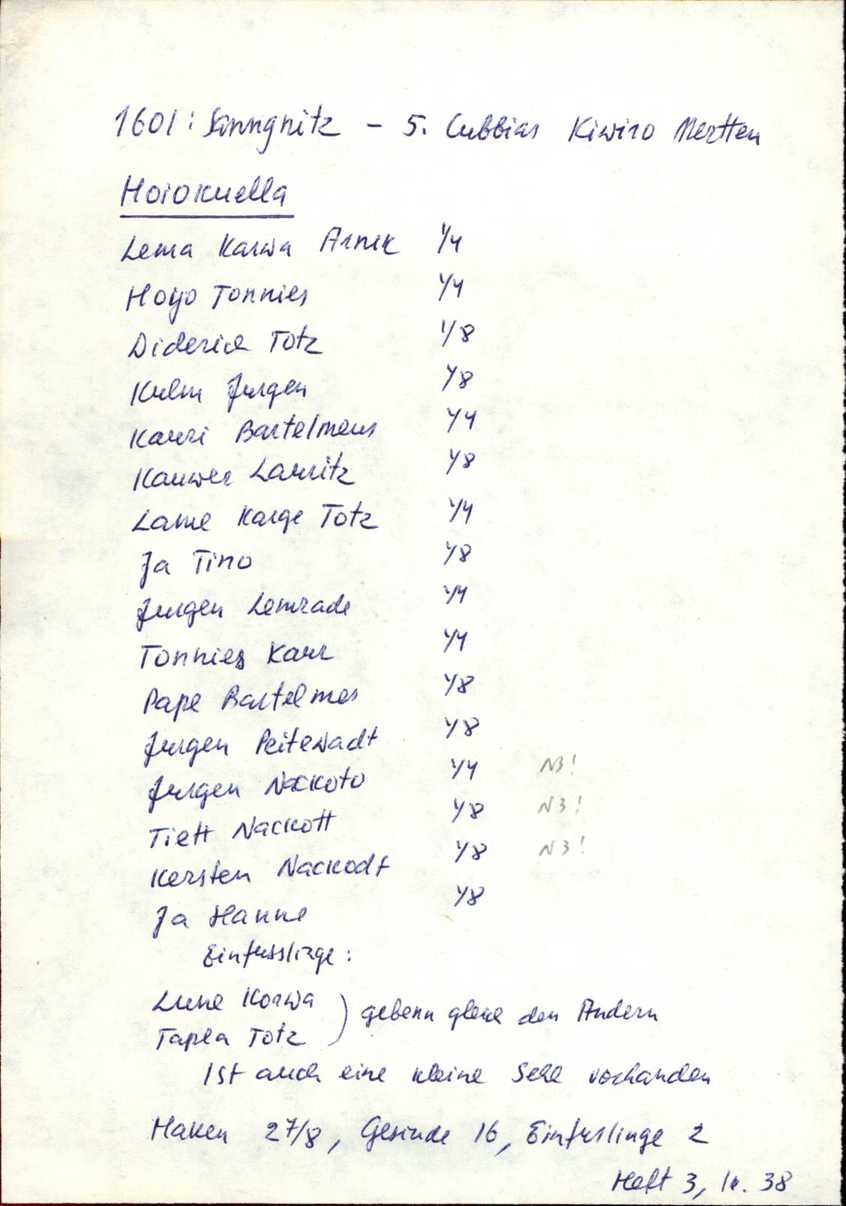 1601: Sanngnitz - 5. Cubbias Kiwiro Mertten
Hoiokuella
Lema Karwa Arnik 1/4
Hoyo Tonnies 1/4
Diderich Totz 1/8
Kulm Jurgen 1/8
Kauri Bartelmeus 1/4
Kauwer Lauritz 1/8
Lame Karge Totz 1/4
Ja Tino 1/8
Jurgen Lemrade 1/4
Tonnies Karr 1/4
Pape Bartelmes 1/8
Jurgen Peitewadt 1/8
Jurgen Nackoto 1/4 NB!
Tiett Nackott 1/8 NB!
Kersten Nackodt 1/8 NB!
Ja Hanne 1/8
Einfusslinge:
Lune Korwa
Tapla Totz ) gebenn gleich den Andern
Ist auch eine kleine Sehe vorhanden
Haken 2 7/8, Gesinde 16, Einfusslinge 2
Heft 3, lk. 38